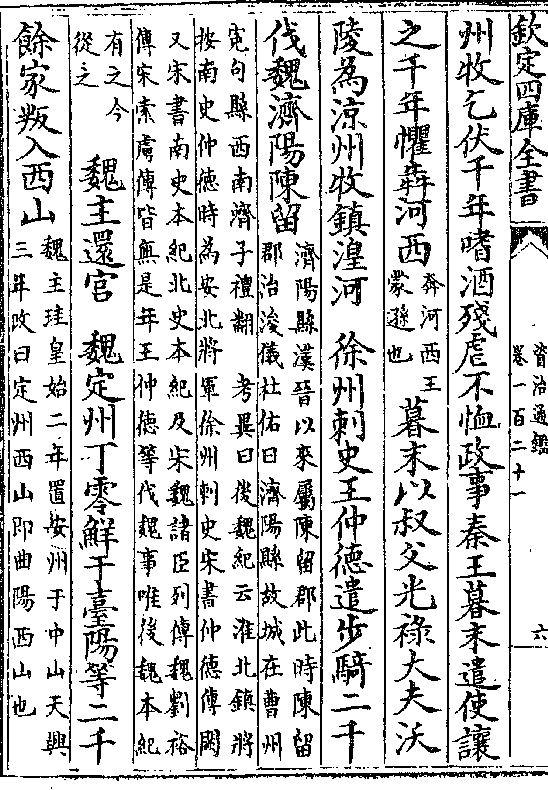 欽定四庫全書
資治通鑑
卷一百二十一
六
州牧乞伏千年嗜酒殘虐不恤政事秦王暮末遣使讓
之千年懼犇河西
奔河西王
蒙遜也
暮末以叔父光祿大夫沃
陵為涼州牧鎮湟河　徐州刺史王仲德遣步騎二千
伐魏濟陽陳留
濟陽縣漢晉以來屬陳留郡此時陳留
郡治浚儀杜佑曰濟陽縣故城在曹州
寃句縣西南濟子禮翻　考異曰後魏紀云淮北鎮將
按南史仲德時為安北將軍徐州刺史宋書仲德傳闕
又宋書南史本紀北史本紀及宋魏諸臣列傳魏劉裕
傳宋索虜傳皆無是年王仲德等伐魏事唯後魏本紀
有之今
從之
魏主還宮　魏定州丁零鮮于臺陽等二千
餘家叛入西山
魏主珪皇始二年置安州于中山天興
三年改曰定州西山即曲陽西山也